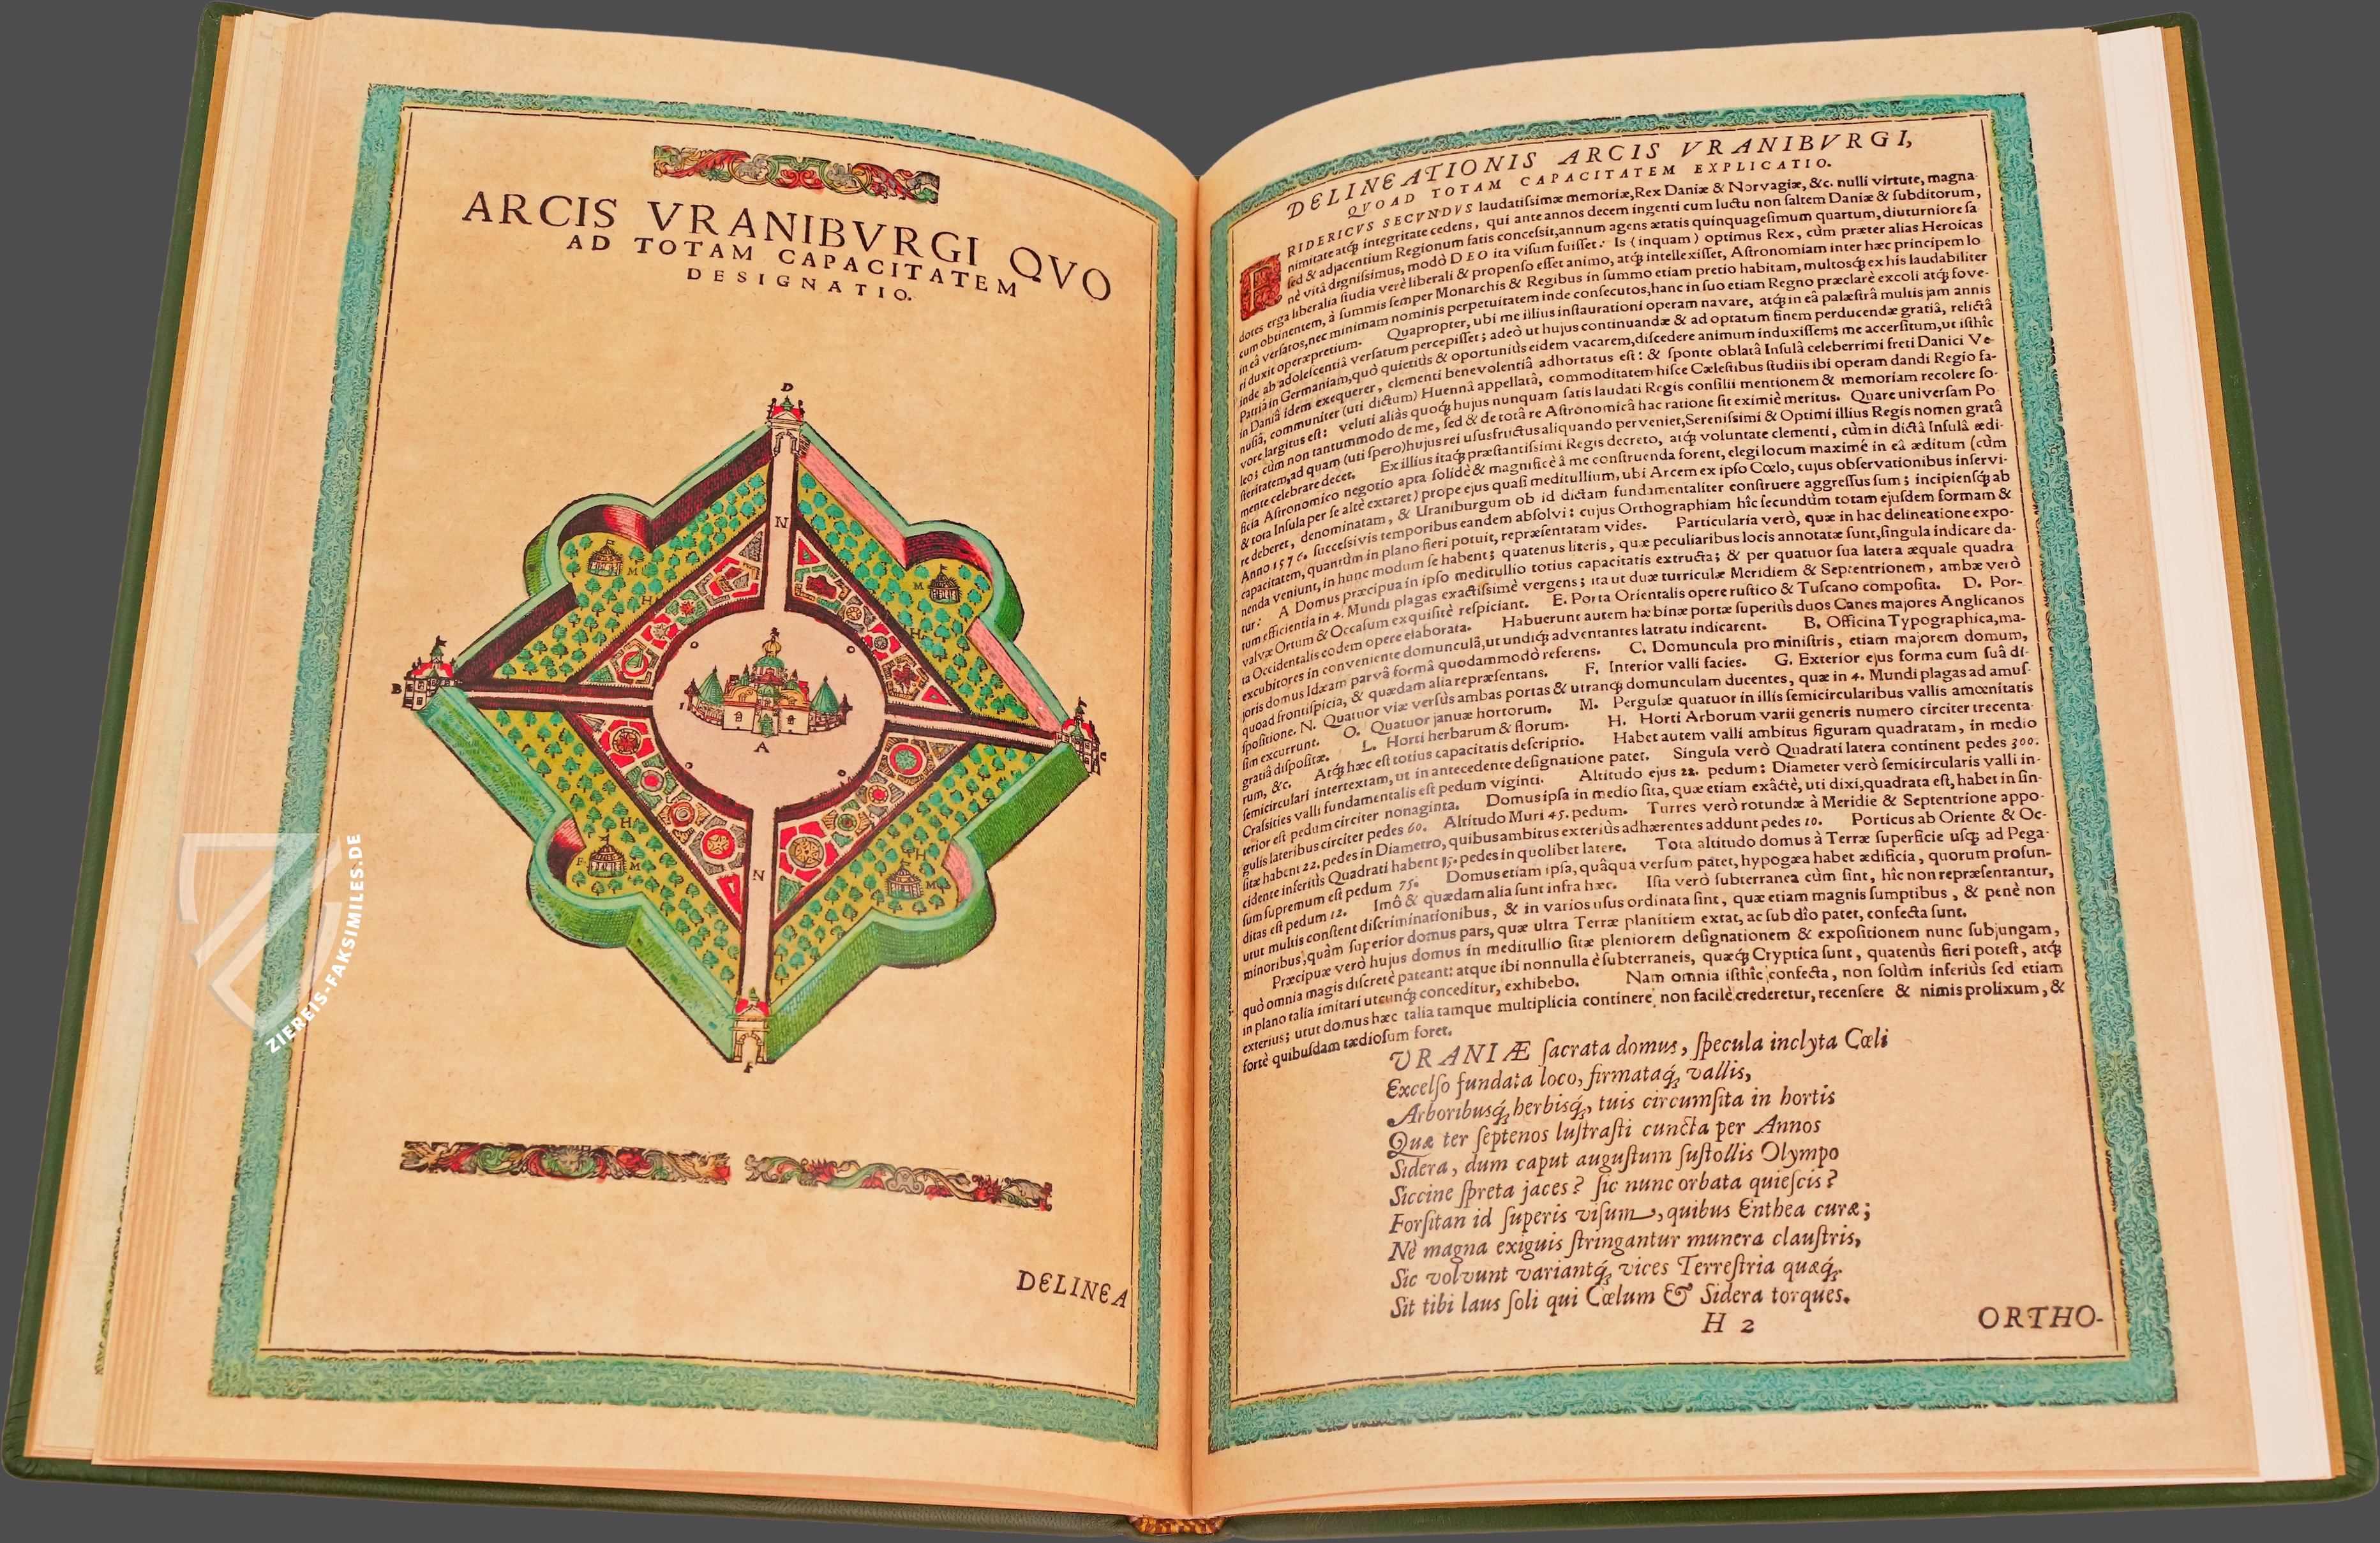 ARCIS VRANIBVRGI QVO
AD TOTAM CAPACITATEM
DESIGNATIO.
D
N
M
M
H
H
B
I
A
H
H
F
M
M
N
DELINEA
ZIEREIS-FAKSIMILES.DE
DELINEATIONIS ARCIS VRANIBVRGI,
QVOAD TOTAM CAPACITATEM EXPLICATIO.
FRIDERICVS SECVNDVS laudatiſsimæ memoriæ, Rex Daniæ & Norvagiæ, &c. nulli virtute, magna-
nimitate atq́ꝫ integritate cedens, qui ante annos decem ingenti cum luctu non ſaltem Daniæ & ſubditorum,
ſed & adjacentium Regionum ſatis conceſsit, annum agens ætatis quinquageſimum quartum, diuturniore ſa-
nè vitâ digniſsimus, modò DEO ita viſum fuiſſet. Is (inquam) optimus Rex, cùm præter alias Heroicas
dotes erga liberalia ſtudia verè liberali & propenſo eſſet animo, atq́ꝫ intellexiſſet, Aſtronomiam inter hæc principem lo-
cum obtinentem, à ſummis ſemper Monarchis & Regibus in ſummo etiam pretio habitam, multosq́ꝫ ex his laudabiliter
in eâ verſatos, nec minimam nominis perpetuitatem inde conſecutos, hanc in ſuo etiam Regno præclarè excoli atq́ꝫ fove-
ri duxit operæpretium. Quapropter, ubi me illius inſtaurationi operam navare, atq́ꝫ in eâ palæſtrâ multis jam annis
inde ab adoleſcentiâ verſatum percepiſſet; adeò ut hujus continuandæ & ad optatum finem perducendæ gratiâ, relictâ
Patriâ in Germaniam, quò quietiùs & oportuniùs eidem vacarem, diſcedere animum induxiſſem; me accerſitum, ut iſthîc
in Daniâ idem exequerer, clementi benevolentiâ adhortatus eſt: & ſponte oblatâ Inſulâ celeberrimi freti Danici Ve-
nuſiâ, communiter (uti dictum) Huennâ appellatâ, commoditatem hiſce Cæleſtibus ſtudiis ibi operam dandi Regio fa-
vore largitus eſt: veluti aliàs quoq́ꝫ hujus nunquam ſatis laudati Regis conſilii mentionem & memoriam recolere ſo-
leo; cùm non tantummodo de me, ſed & de totâ re Aſtronomicâ hac ratione ſit eximiè meritus. Quare univerſam Po-
ſteritatem, ad quam (uti ſpero) hujus rei uſusfructus aliquando perveniet, Sereniſsimi & Optimi illius Regis nomen gratâ
mente celebrare decet. Ex illius itaq́ꝫ præſtantiſsimi Regis decreto, atq́ꝫ voluntate clementi, cùm in dictâ Inſulâ ædi-
ficia Aſtronomico negotio apta ſolidè & magnificè à me conſtruenda forent, elegi locum maximè in eâ æditum (cùm
& tota Inſula per ſe altè extaret) prope ejus quaſi meditullium, ubi Arcem ex ipſo Cœlo, cujus obſervationibus inſervi-
re deberet, denominatam, & Uraniburgum ob id dictam fundamentaliter conſtruere aggreſſus ſum; incipienſq́ꝫ ab
Anno 1576. ſucceſsivis temporibus eandem abſolvi: cujus Orthographiam hîc ſecundùm totam ejuſdem formam &
capacitatem, quantùm in plano fieri potuit, repræſentatam vides. Particularia verò, quæ in hac delineatione expo-
nenda veniunt, in hunc modum ſe habent; quatenus literis, quæ peculiaribus locis annotatæ ſunt, ſingula indicare da-
tur: A Domus præcipua in ipſo meditullio totius capacitatis extructa; & per quatuor ſua latera æquale quadra-
tum efficientia in 4. Mundi plagas exactiſsimè vergens; ita ut duæ turriculæ Meridiem & Septentrionem, ambæ verò
valvæ Ortum & Occaſum exquiſitè reſpiciant. E. Porta Orientalis opere ruſtico & Tuſcano compoſita. D. Por-
ta Occidentalis eodem opere elaborata. Habuerunt autem hæ binæ portæ ſuperiùs duos Canes majores Anglicanos
excubitores in conveniente domunculâ, ut undiq́ꝫ adventantes latratu indicarent. B. Officina Typographica, ma-
joris domus Idæam parvâ formâ quodammodò referens. C. Domuncula pro miniſtris, etiam majorem domum,
quoad frontiſpicia, & quædam alia repræſentans. F. Interior valli facies. G. Exterior ejus forma cum ſuâ di-
ſpoſitione. N. Quatuor viæ verſùs ambas portas & utramq́ꝫ domunculam ducentes, quæ in 4. Mundi plagas ad amuſ-
ſim excurrunt. O. Quatuor januæ hortorum. M. Pergulæ quatuor in illis ſemicircularibus vallis amœnitatis
gratiâ diſpoſitæ. L. Horti herbarum & florum. H. Horti Arborum varii generis numero circiter trecenta-
rum, &c. Atq́ꝫ hæc eſt totius capacitatis deſcriptio. Habet autem valli ambitus figuram quadratam, in medio
ſemicirculari intertextam, ut in antecedente deſignatione patet. Singula verò Quadrati latera continent pedes 300.
Craſsities valli fundamentalis eſt pedum viginti. Altitudo ejus 22. pedum: Diameter verò ſemicircularis valli in-
terior eſt pedum circiter nonaginta. Domus ipſa in medio ſita, quæ etiam exâctè, uti dixi, quadrata eſt, habet in ſin-
gulis lateribus circiter pedes 60. Altitudo Muri 45. pedum. Turres verò rotundæ à Meridie & Septentrione appo-
ſitæ habent 22. pedes in Diametro, quibus ambitus exteriùs adhærentes addunt pedes 10. Porticus ab Oriente & Oc-
cidente inferiùs Quadrati habent 15. pedes in quolibet latere. Tota altitudo domus à Terræ ſuperficie uſq́ꝫ ad Pega-
ſum ſupremum eſt pedum 75. Domus etiam ipſa, quâqua verſum patet, hypogæa habet ædificia, quorum profun-
ditas eſt pedum 12. Imô & quædam alia ſunt infra hæc. Iſta verò ſubterranea cùm ſint, hîc non repræſentantur,
utut multis conſtent diſcriminationibus, & in varios uſus ordinata ſint, quæ etiam magnis ſumptibus, & penè non
minoribus, quàm ſuperior domus pars, quæ ultra Terræ planitiem extat, ac ſub dîo patet, confecta ſunt.
Præcipuæ verò hujus domus in meditullio ſitæ pleniorem deſignationem & expoſitionem nunc ſubjungam,
quò omnia magis diſcretè pateant: atque ibi nonnulla è ſubterraneis, quæq́ꝫ Cryptica ſunt, quatenùs fieri poteſt, atq́ꝫ
in plano talia imitari utcunq́ꝫ conceditur, exhibebo. Nam omnia iſthîc confecta, non ſolùm inferiùs ſed etiam
exterius; utut domus hæc talia tamque multiplicia continere non facilè crederetur, recenſere & nimis prolixum, &
fortè quibuſdam tædioſum foret.
URANIÆ ſacrata domus, ſpecula inclyta Cœli
Excelſo fundata loco, firmataq́ꝫ vallis,
Arboribusq́ꝫ herbisq́ꝫ, tuis circumſita in hortis
Quæ ter ſeptenos luſtraſti cuncta per Annos
Sidera, dum caput auguſtum ſuſtollis Olympo
Siccine ſpreta jaces? ſic nunc orbata quieſcis?
Forſitan id ſuperis viſum, quibus Enthea curæ;
Nè magna exiguis ſtringantur munera clauſtris,
Sic volvunt variantq́ꝫ vices Terreſtria quæq́ꝫ.
Sit tibi laus ſoli qui Cœlum & Sidera torques.
H 2
ORTHO-